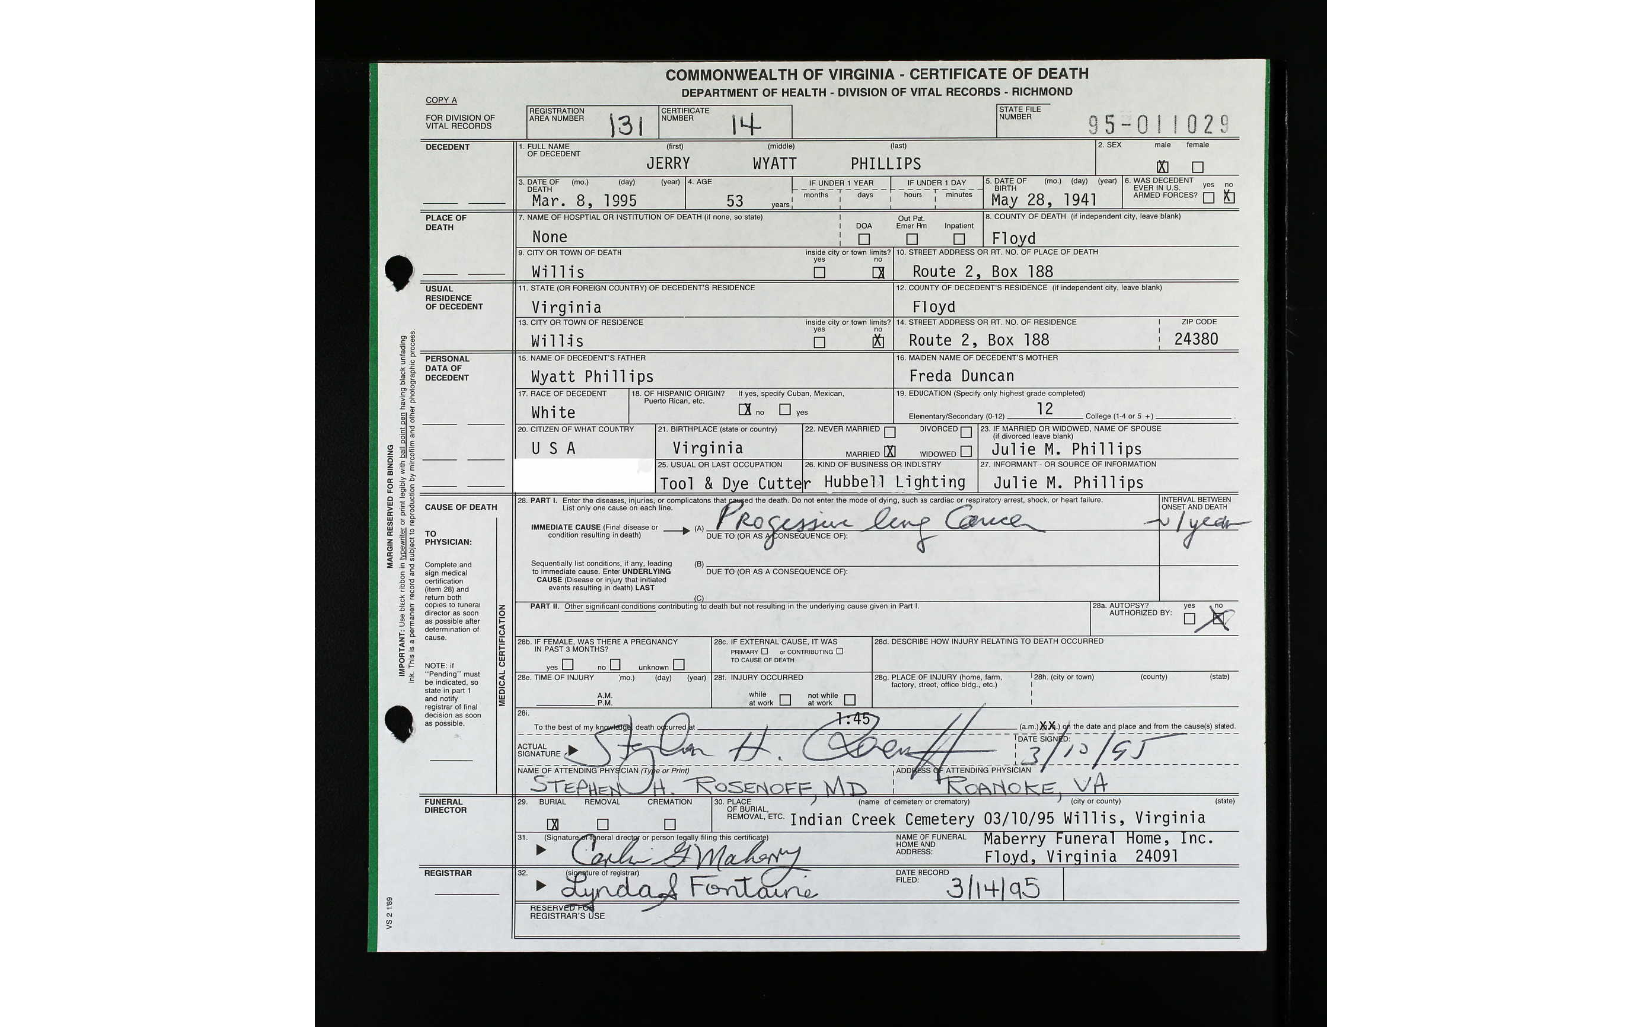 COMMONWEALTH OF VIRGINIA - CERTIFICATE OF DEATH
DEPARTMENT OF HEALTH - DIVISION OF VITAL RECORDS - RICHMOND
COPY A
FOR DIVISION OF VITAL RECORDS
REGISTRATION AREA NUMBER 131
CERTIFICATE NUMBER 14
STATE FILE NUMBER 95-011029
DECEDENT
1. FULL NAME OF DECEDENT (first) (middle) (last)
JERRY WYATT PHILLIPS
2. SEX male X female
3. DATE OF DEATH (mo.) (day) (year)
Mar. 8, 1995
4. AGE 53 years
IF UNDER 1 YEAR months days
IF UNDER 1 DAY hours minutes
5. DATE OF BIRTH (mo.) (day) (year)
May 28, 1941
6. WAS DECEDENT EVER IN U.S. ARMED FORCES? yes no X
PLACE OF DEATH
7. NAME OF HOSPTIAL OR INSTITUTION OF DEATH (if none, so state)
None
DOA Out Pat. Emer Rm Inpatient
8. COUNTY OF DEATH (if independent city, leave blank)
Floyd
9. CITY OR TOWN OF DEATH
Willis
inside city or town limits? yes no X
10. STREET ADDRESS OR RT. NO. OF PLACE OF DEATH
Route 2, Box 188
USUAL RESIDENCE OF DECEDENT
11. STATE (OR FOREIGN COUNTRY) OF DECEDENT'S RESIDENCE
Virginia
12. COUNTY OF DECEDENT'S RESIDENCE (if independent city, leave blank)
Floyd
13. CITY OR TOWN OF RESIDENCE
Willis
inside city or town limits? yes no X
14. STREET ADDRESS OR RT. NO. OF RESIDENCE
Route 2, Box 188
ZIP CODE
24380
PERSONAL DATA OF DECEDENT
15. NAME OF DECEDENT'S FATHER
Wyatt Phillips
16. MAIDEN NAME OF DECEDENT'S MOTHER
Freda Duncan
17. RACE OF DECEDENT
White
18. OF HISPANIC ORIGIN? If yes, specify Cuban, Mexican, Puerto Rican, etc.
X no yes
19. EDUCATION (Specify only highest grade completed)
Elementary/Secondary (0-12) 12 College (1-4 or 5 +)
20. CITIZEN OF WHAT COUNTRY
U S A
21. BIRTHPLACE (state or country)
Virginia
22. NEVER MARRIED DIVORCED
MARRIED X WIDOWED
23. IF MARRIED OR WIDOWED, NAME OF SPOUSE (if divorced leave blank)
Julie M. Phillips
25. USUAL OR LAST OCCUPATION
Tool & Dye Cutter
26. KIND OF BUSINESS OR INDUSTRY
Hubbell Lighting
27. INFORMANT - OR SOURCE OF INFORMATION
Julie M. Phillips
CAUSE OF DEATH
TO PHYSICIAN:
Complete and sign medical certification (item 28) and return both copies to funeral director as soon as possible after determination of cause.
NOTE: if "Pending" must be indicated, so state in part 1 and notify registrar of final decision as soon as possible.
MEDICAL CERTIFICATION
28. PART I. Enter the diseases, injuries, or complicatons that caused the death. Do not enter the mode of dying, such as cardiac or respiratory arrest, shock, or heart failure.
List only one cause on each line.
INTERVAL BETWEEN ONSET AND DEATH
IMMEDIATE CAUSE (Final disease or condition resulting in death) (A) Progessive lung Cancer ~1 year
DUE TO (OR AS A CONSEQUENCE OF):
Sequentially list conditions, if any, leading to immediate cause. Enter UNDERLYING CAUSE (Disease or injury that initiated events resulting in death) LAST
(B)
DUE TO (OR AS A CONSEQUENCE OF):
(C)
PART II. Other significant conditions contributing to death but not resulting in the underlying cause given in Part I.
28a. AUTOPSY? AUTHORIZED BY: yes no X
28b. IF FEMALE, WAS THERE A PREGNANCY IN PAST 3 MONTHS?
yes no unknown
28c. IF EXTERNAL CAUSE, IT WAS
PRIMARY or CONTRIBUTING
TO CAUSE OF DEATH
28d. DESCRIBE HOW INJURY RELATING TO DEATH OCCURRED
28e. TIME OF INJURY (mo.) (day) (year)
A.M.
P.M.
28f. INJURY OCCURRED
while at work not while at work
28g. PLACE OF INJURY (home, farm, factory, street, office bldg., etc.)
28h. (city or town) (county) (state)
28i.
To the best of my knowledge, death occurred at 1:45 (a.m.) XX ) on the date and place and from the cause(s) stated.
ACTUAL SIGNATURE Stephen H. Rosenoff
DATE SIGNED: 3/10/95
NAME OF ATTENDING PHYSICIAN (Type or Print)
STEPHEN H. ROSENOFF, MD
ADDRESS OF ATTENDING PHYSICIAN
ROANOKE, VA
FUNERAL DIRECTOR
29. BURIAL X REMOVAL CREMATION
30. PLACE OF BURIAL, REMOVAL, ETC. (name of cemetery or crematory) (city or county) (state)
Indian Creek Cemetery 03/10/95 Willis, Virginia
31. (Signature of funeral director or person legally filing this certificate)
NAME OF FUNERAL HOME AND ADDRESS:
Maberry Funeral Home, Inc.
Floyd, Virginia 24091
REGISTRAR
32. (signature of registrar)
Lynda S Fontaine
DATE RECORD FILED: 3/14/95
RESERVED FOR REGISTRAR'S USE
MARGIN RESERVED FOR BINDING
IMPORTANT: Use black ribbon in typewriter or print legibly with ball point pen having black unfading ink. This is a permanen record and subject to reproduction by mircofilm and other photographic process
VS 2 1/89